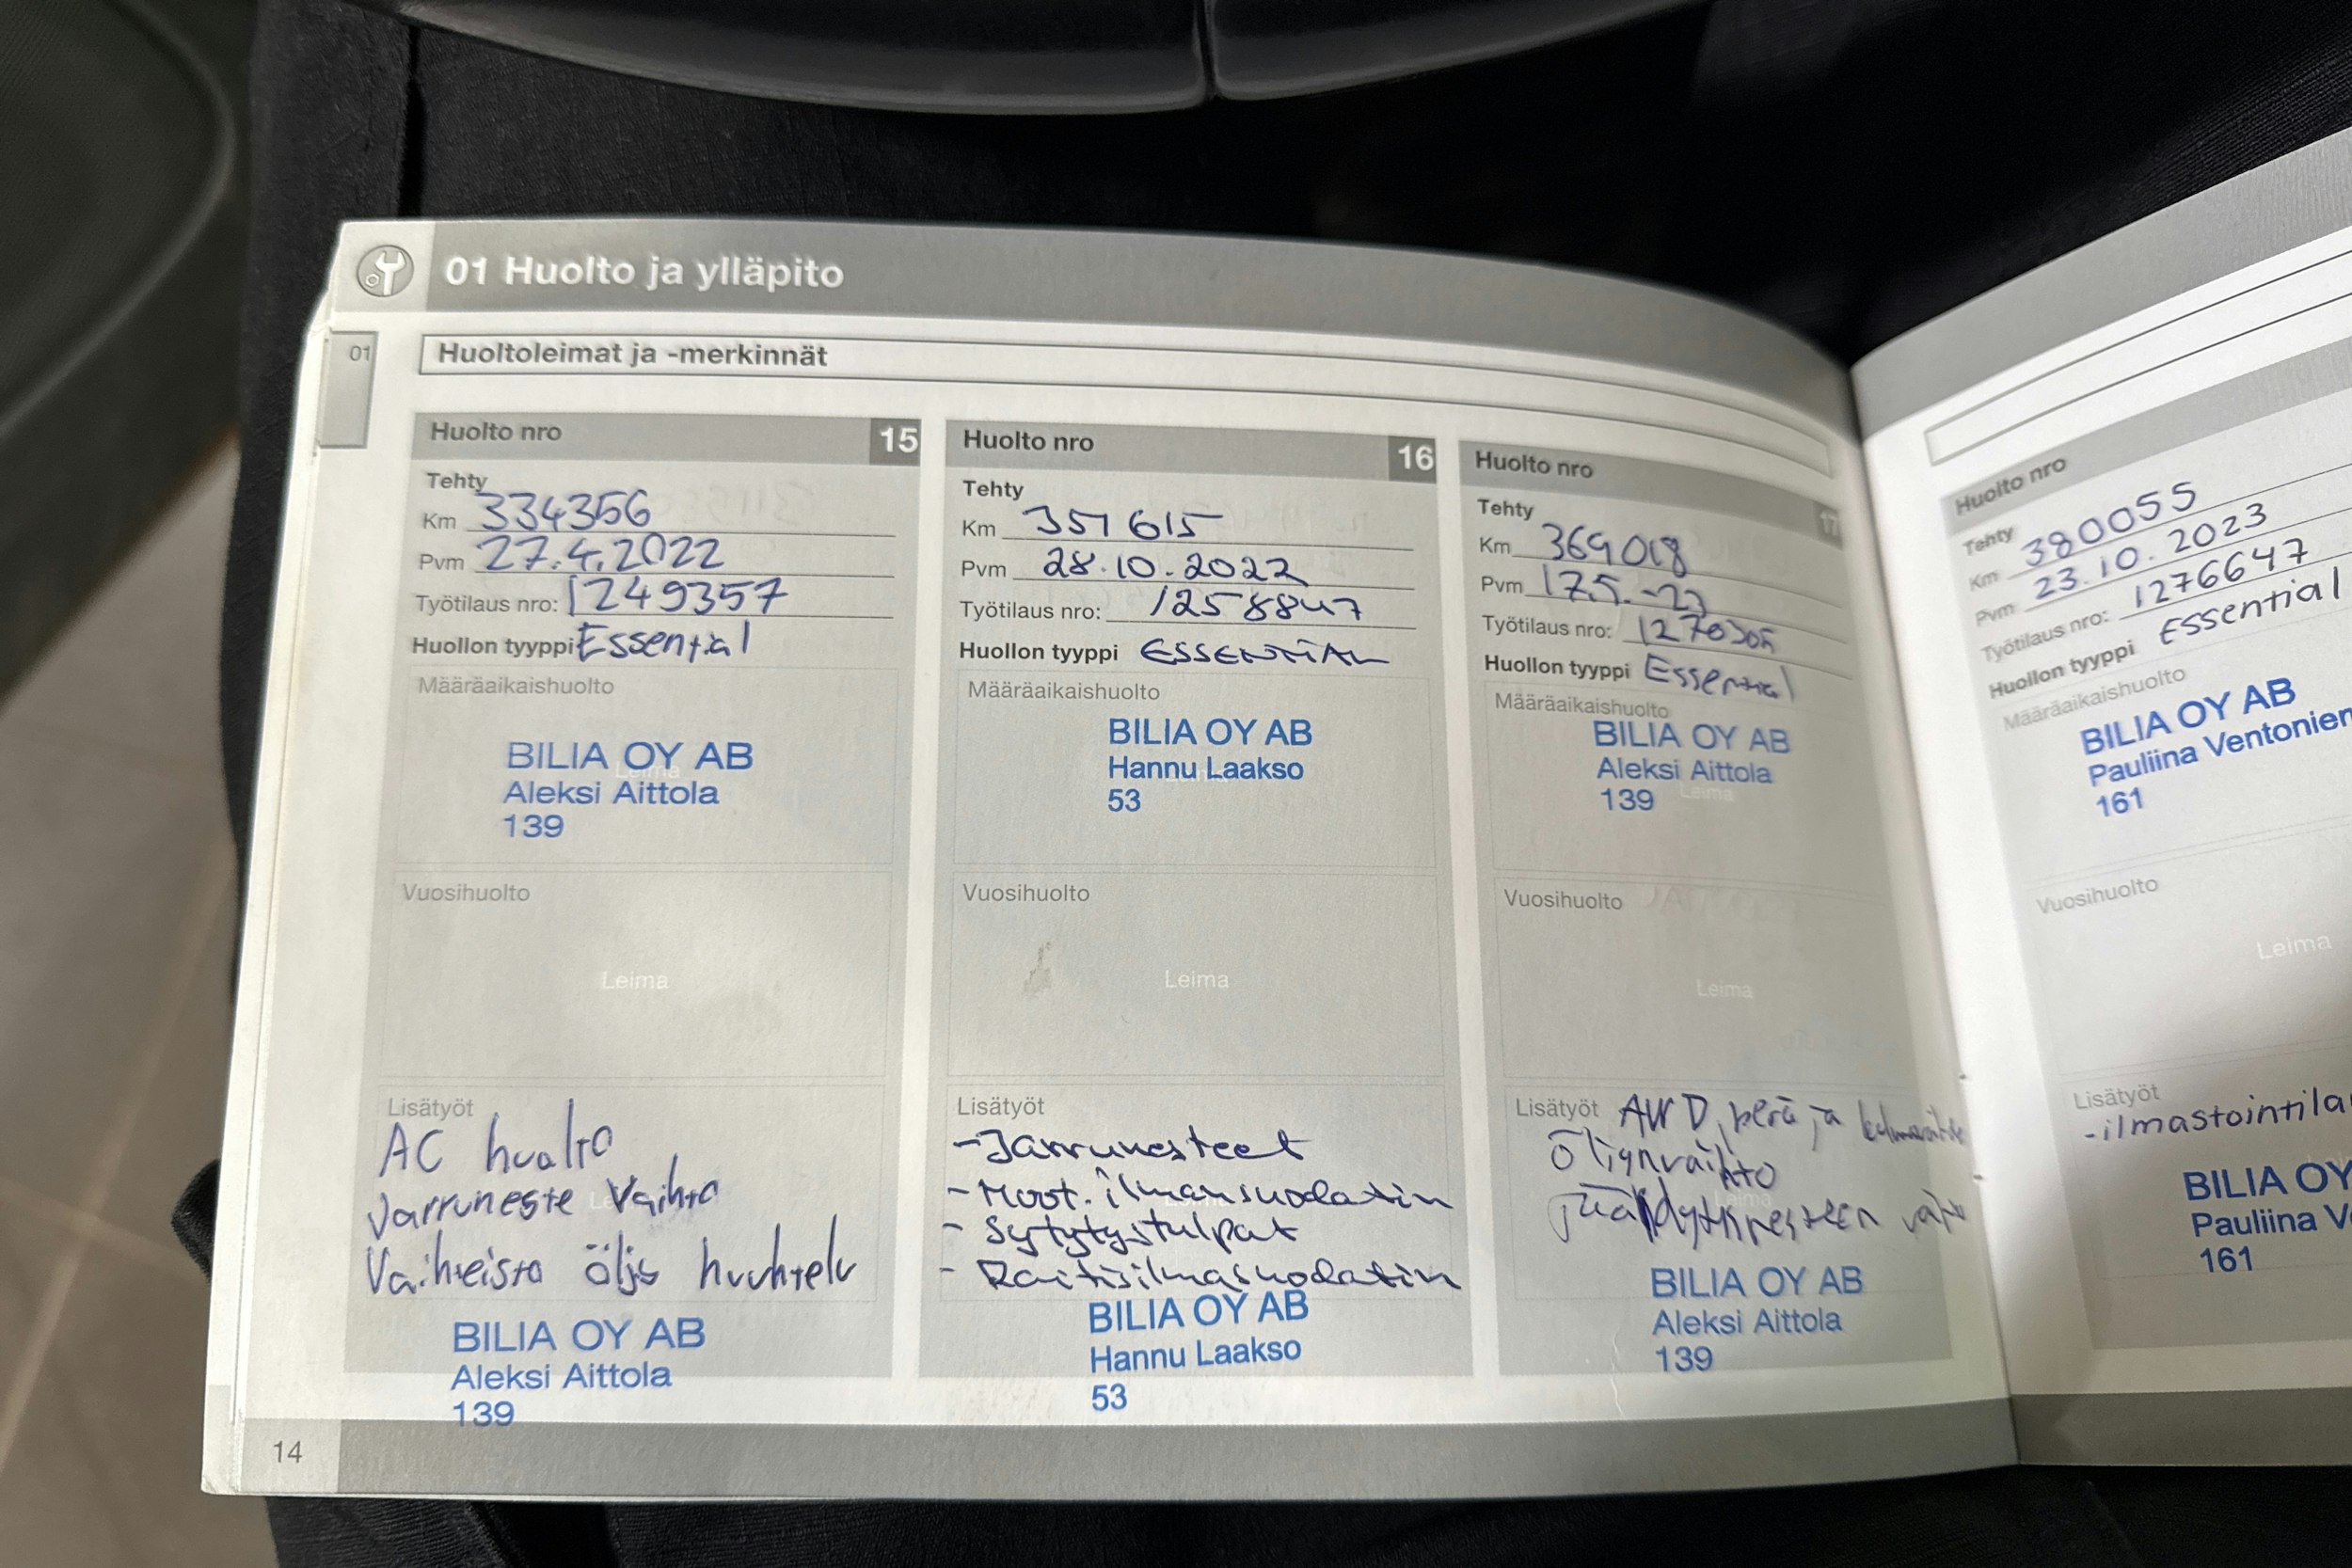 01 Huolto ja ylläpito
01
Huoltoleimat ja -merkinnät
Huolto nro 15
Tehty
Km 334356
Pvm 27.4.2022
Työtilaus nro: 1249357
Huollon tyyppi Essential
Määräaikaishuolto
BILIA OY AB
Aleksi Aittola
139
Vuosihuolto
Leima
Lisätyöt
AC huolto
Jarruneste vaihto
Vaihteisto öljy huuhtelu
BILIA OY AB
Aleksi Aittola
139
Huolto nro 16
Tehty
Km 351615
Pvm 28.10.2022
Työtilaus nro: 1258847
Huollon tyyppi ESSENTIAL
Määräaikaishuolto
BILIA OY AB
Hannu Laakso
53
Vuosihuolto
Leima
Lisätyöt
-Jarrunesteet
-Moot. ilmansuodatin
- Sytytystulpat
- Raitisilmasuodatin
BILIA OY AB
Hannu Laakso
53
Huolto nro 17
Tehty
Km 369018
Pvm 17.5.-23
Työtilaus nro:
Huollon tyyppi Essential
Määräaikaishuolto
BILIA OY AB
Aleksi Aittola
139
Leima
Vuosihuolto
Leima
Lisätyöt AWD, perä ja
öljynvaihto
Jäähdytysnesteen
BILIA OY AB
Aleksi Aittola
139
14
Huolto nro
Tehty
Km 380055
Pvm 23.10.2023
Työtilaus nro: 1276647
Huollon tyyppi Essential
Määräaikaishuolto
BILIA OY AB
Pauliina Ventonien
161
Vuosihuolto
Leima
Lisätyöt
-ilmastointila
BILIA OY
Pauliina V
161